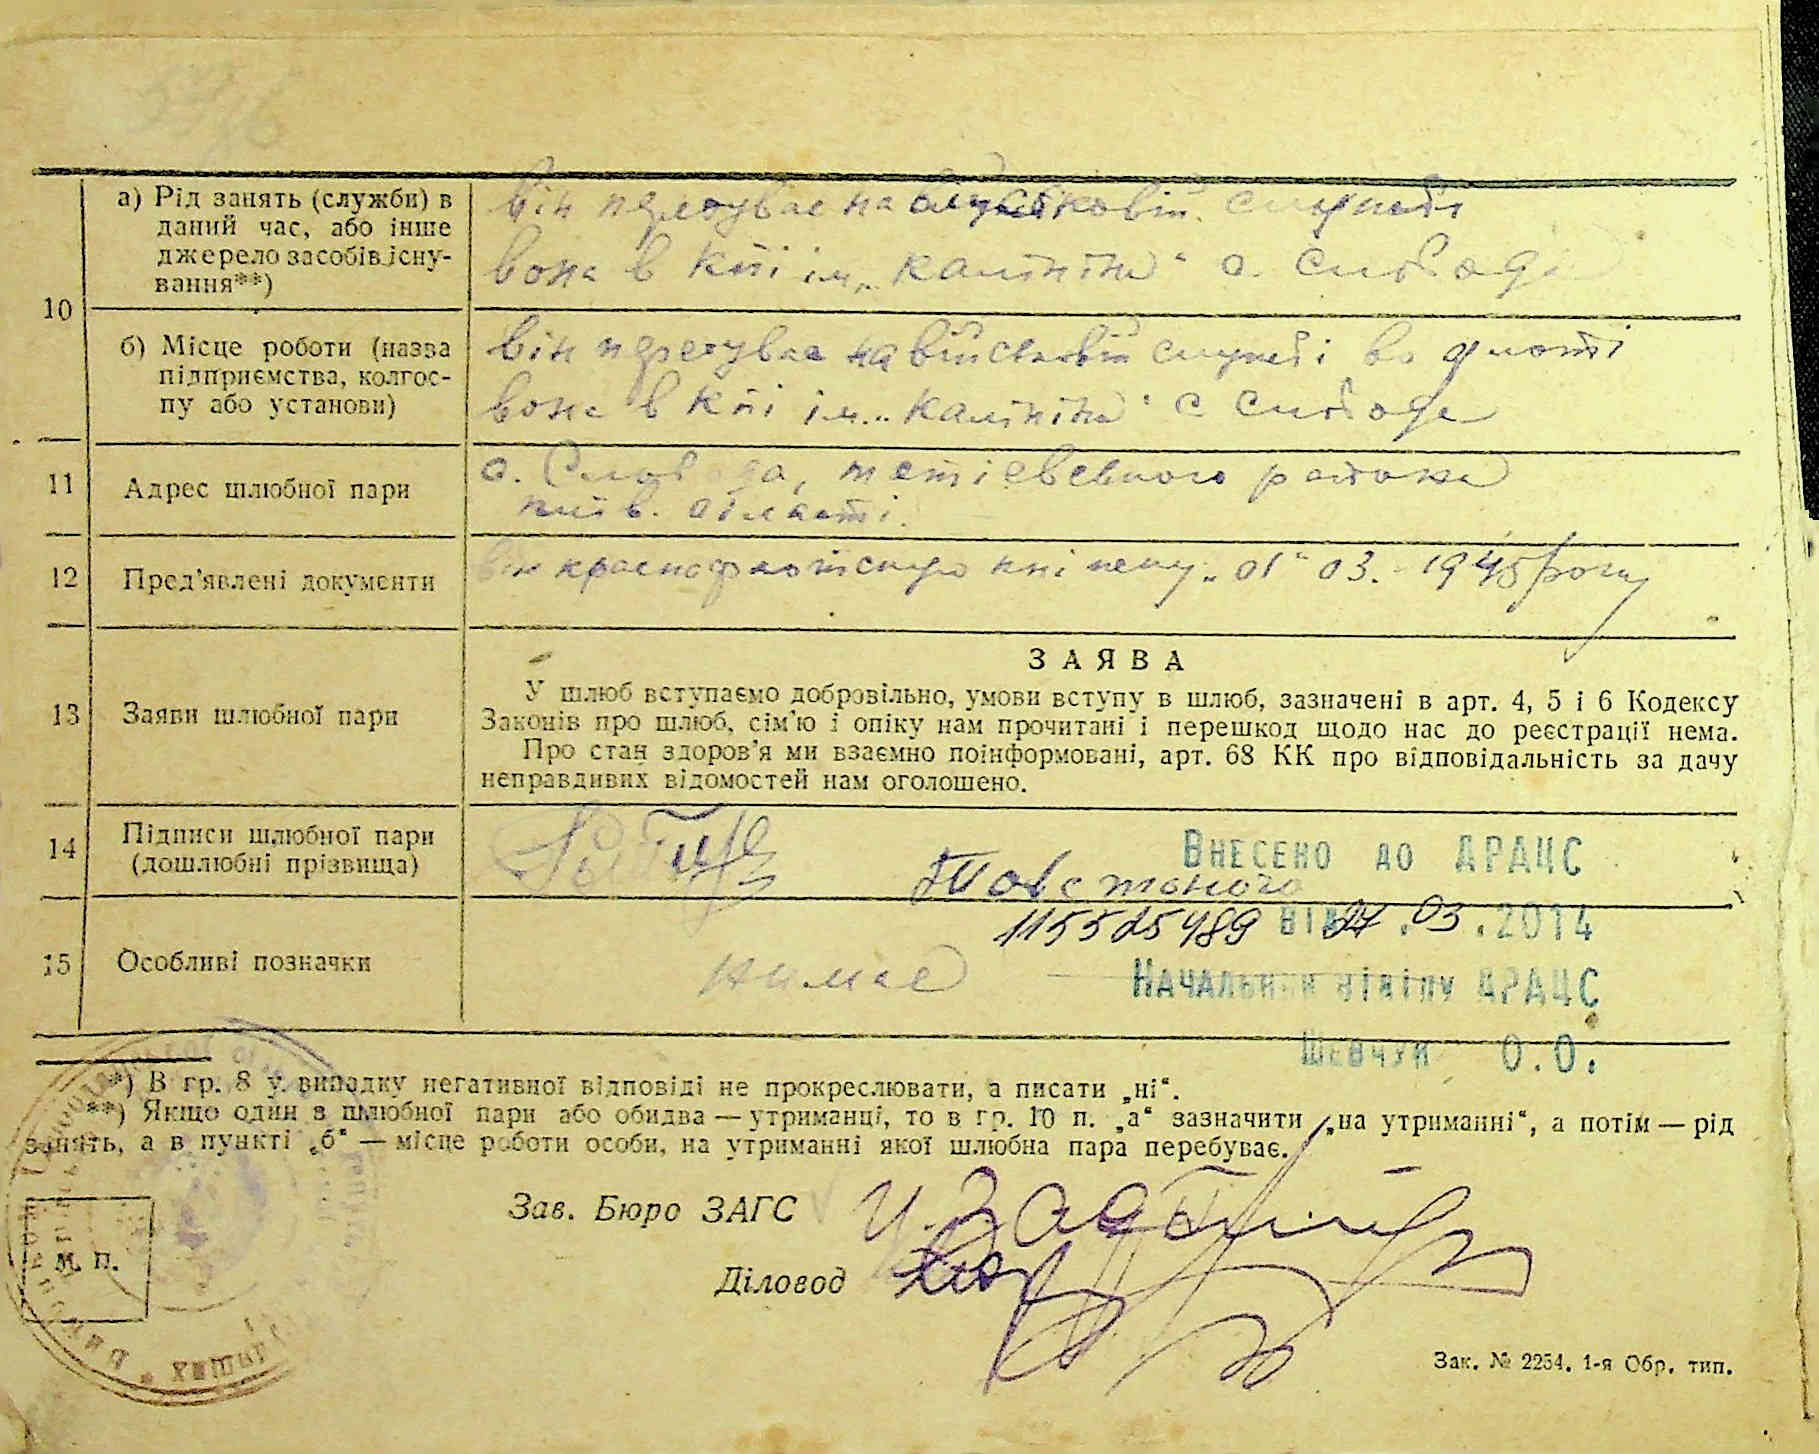 10
а) Рід занять (служби) в
даний час, або інше
джерело засобів існу-
вання**)
він на службі
вона в ім. „Калініна“ с. Слобода
б) Місце роботи (назва
підприємства, колгос-
пу або установи)
він на військовій службі во флоті
вона в ім. „Калініна“ с Слобода
11 Адрес шлюбної пари
с. Слобода, района
київ. області.
12 Пред'явлені документи
він краснофлотську книжку „01“ 03. 1945 року
13 Заяви шлюбної пари
ЗАЯВА
У шлюб вступаємо добровільно, умови вступу в шлюб, зазначені в арт. 4, 5 і 6 Кодексу
Законів про шлюб, сім'ю і опіку нам прочитані і перешкод щодо нас до реєстрації нема.
Про стан здоров'я ми взаємно поінформовані, арт. 68 КК про відповідальність за дачу
неправдивих відомостей нам оголошено.
14 Підписи шлюбної пари
(дошлюбні прізвища)
Внесено до ДРАЦС
115525489 від 27.03.2014
15 Особливі позначки
Начальник відділу ДРАЦС
Шевчук О.О.
*) В гр. 8 у випадку негативної відповіді не прокреслювати, а писати „ні“.
**) Якщо один з шлюбної пари або обидва — утриманці, то в гр. 10 п. „а“ зазначити „на утриманні“, а потім — рід
занять, а в пункті „б“ — місце роботи особи, на утриманні якої шлюбна пара перебуває.
Зав. Бюро ЗАГС
Діловод
М. П.
Зак. № 2254. 1-я Обр. тип.